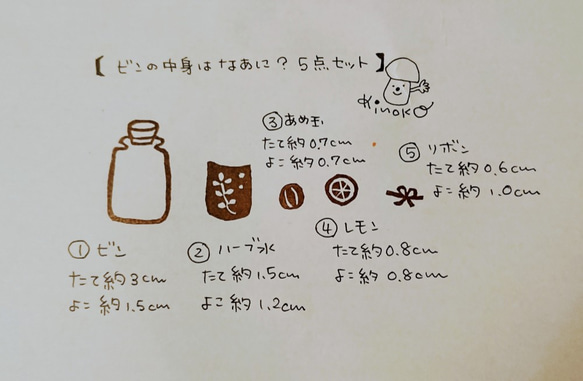 【ビンの中身はなあに？5点セット】
Kinoko
③あめ玉
たて約0.7cm
よこ約0.7cm
⑤リボン
たて約0.6cm
よこ約1.0cm
①ビン
たて約3cm
よこ約1.5cm
②ハーブ水
たて約1.5cm
よこ約1.2cm
④レモン
たて約0.8cm
よこ約0.8cm